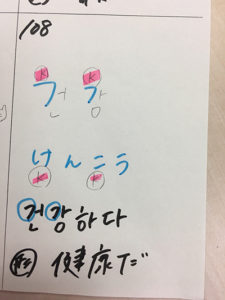 108
K K
건 강
けんこう
K K
건강하다
形 健康だ